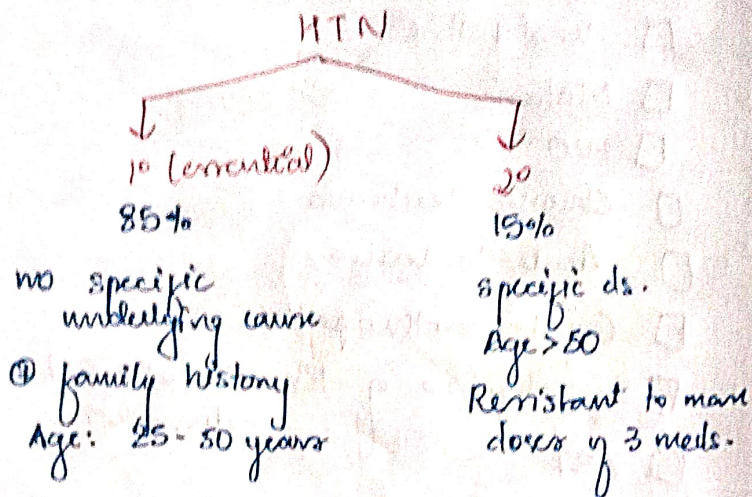 HTN
1° (essential)
2°
85%
15%
no specific
underlying cause
⊕ family history
Age: 25-50 years
specific ds.
Age > 50
Resistant to max
doses of 3 meds.